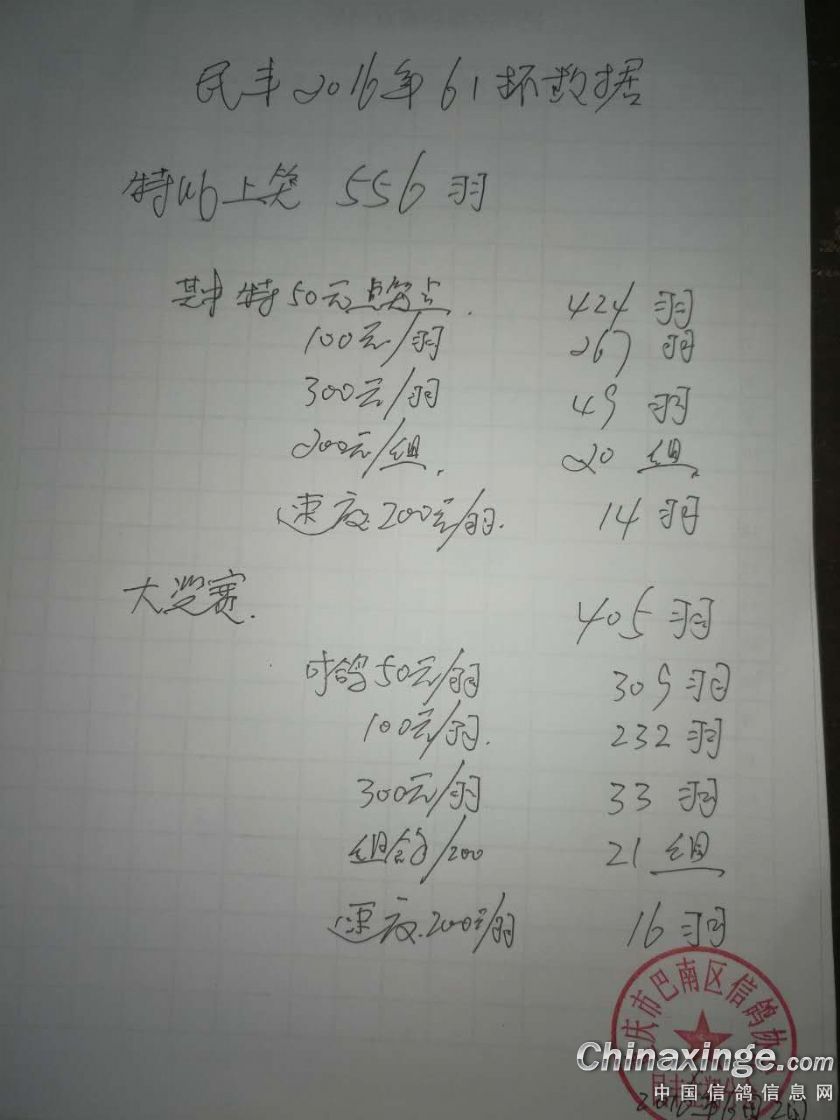 民丰2016年61杯数据
特比上笼 556羽
其中特50元 424羽
100元/羽 267羽
300元/羽 49羽
200元/组. 20组
速度200元/羽. 14羽
大奖赛. 405羽
50元/羽 309羽
100元/羽. 232羽
300元/羽 33羽
组合/200 21组
速度.200元/羽 16羽
庆市巴南区信鸽协
Chinaxinge.com
中国信鸽信息网